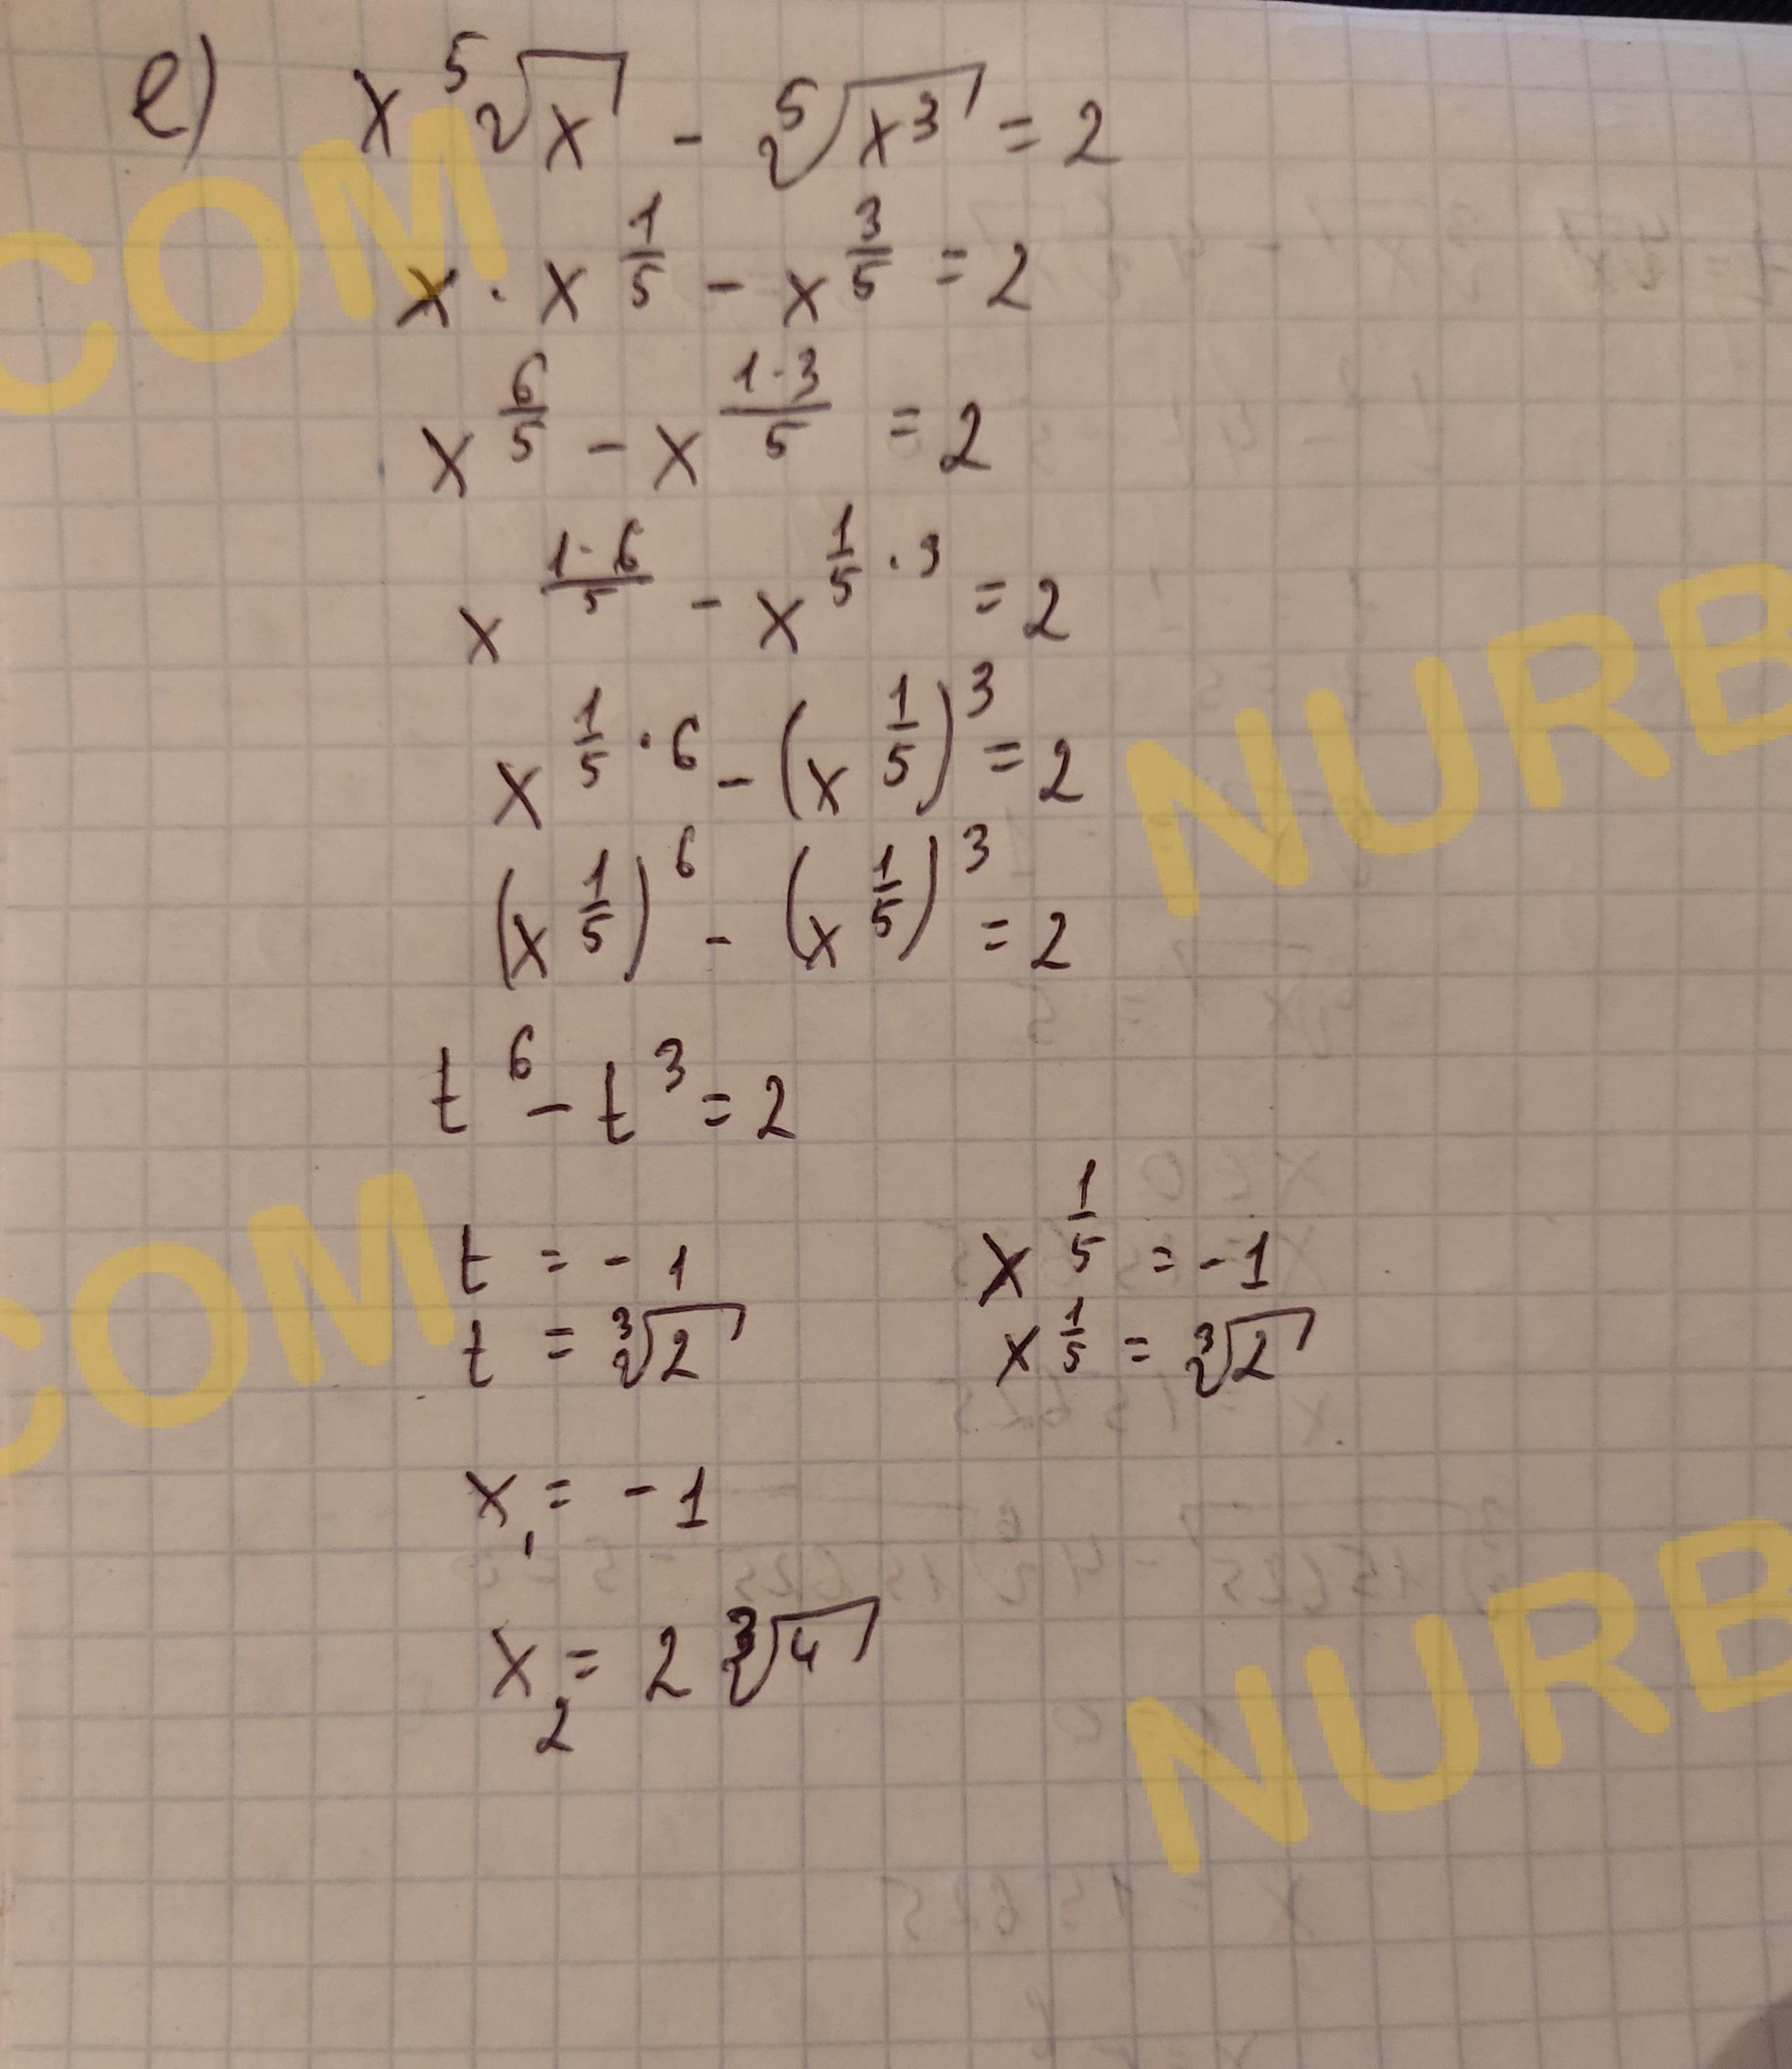 e) x ⁵√x - ⁵√x³ = 2
x · x^(1/5) - x^(3/5) = 2
x^(6/5) - x^((1·3)/5) = 2
x^((1·6)/5) - x^(1/5 · 3) = 2
x^(1/5 · 6) - (x^(1/5))³ = 2
(x^(1/5))⁶ - (x^(1/5))³ = 2
t⁶ - t³ = 2
t = -1 x^(1/5) = -1
t = ³√2 x^(1/5) = ³√2
x₁ = -1
x₂ = 2 ³√4
COM
NURB
COM
NURB